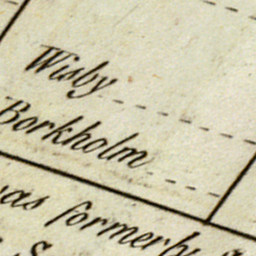 Wisby
Borkholm
was formerly